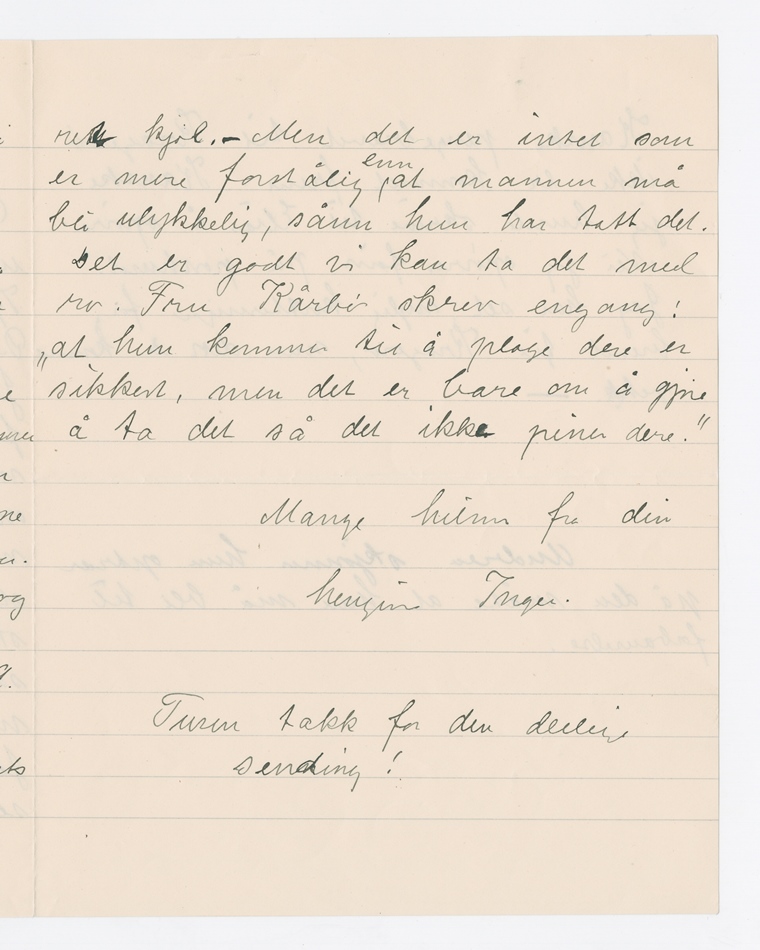 rett kjøl. – Men det er intet som
er mere forståelig enn at mannen må
bli ulykkelig, sånn hun har tatt det.
Det er godt vi kan ta det med
ro. Fru Kårbø skrev engang:
„at hun kommer til å plage dere er
sikkert, men det er bare om å gjøre
å ta det så det ikke piner dere."
Mange hilsner fra din
hengivne Inger.
Tusen takk for den deilige
sending!